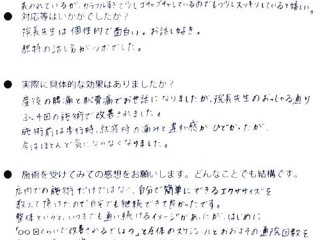 ● 対応等はいかがでしたか?
院長先生は個性的で面白い。お話し好き。
独特の話し方がツボでした。
● 実際に具体的な効果はありましたか?
産後の腰痛と恥骨痛でお世話になりましたが、院長先生のおっしゃる通り
3~4回の施術で改善されました。
施術前は歩行時、就寝時の痛みと違和感がひどかったが、
今はほとんど気にならなくなりました。
● 施術を受けてみての感想をお願いします。どんなことでも結構です。
店内での施術だけではなく、自分で簡単にできるエクササイズを
教えて頂けたので自宅でも継続できて良かったです。
整体というと、いつまでも通い続けるイメージがあったが、はじめに
「○○回くらいで改善されるでしょう」と全体のスケジュールとおおよその通院回数を